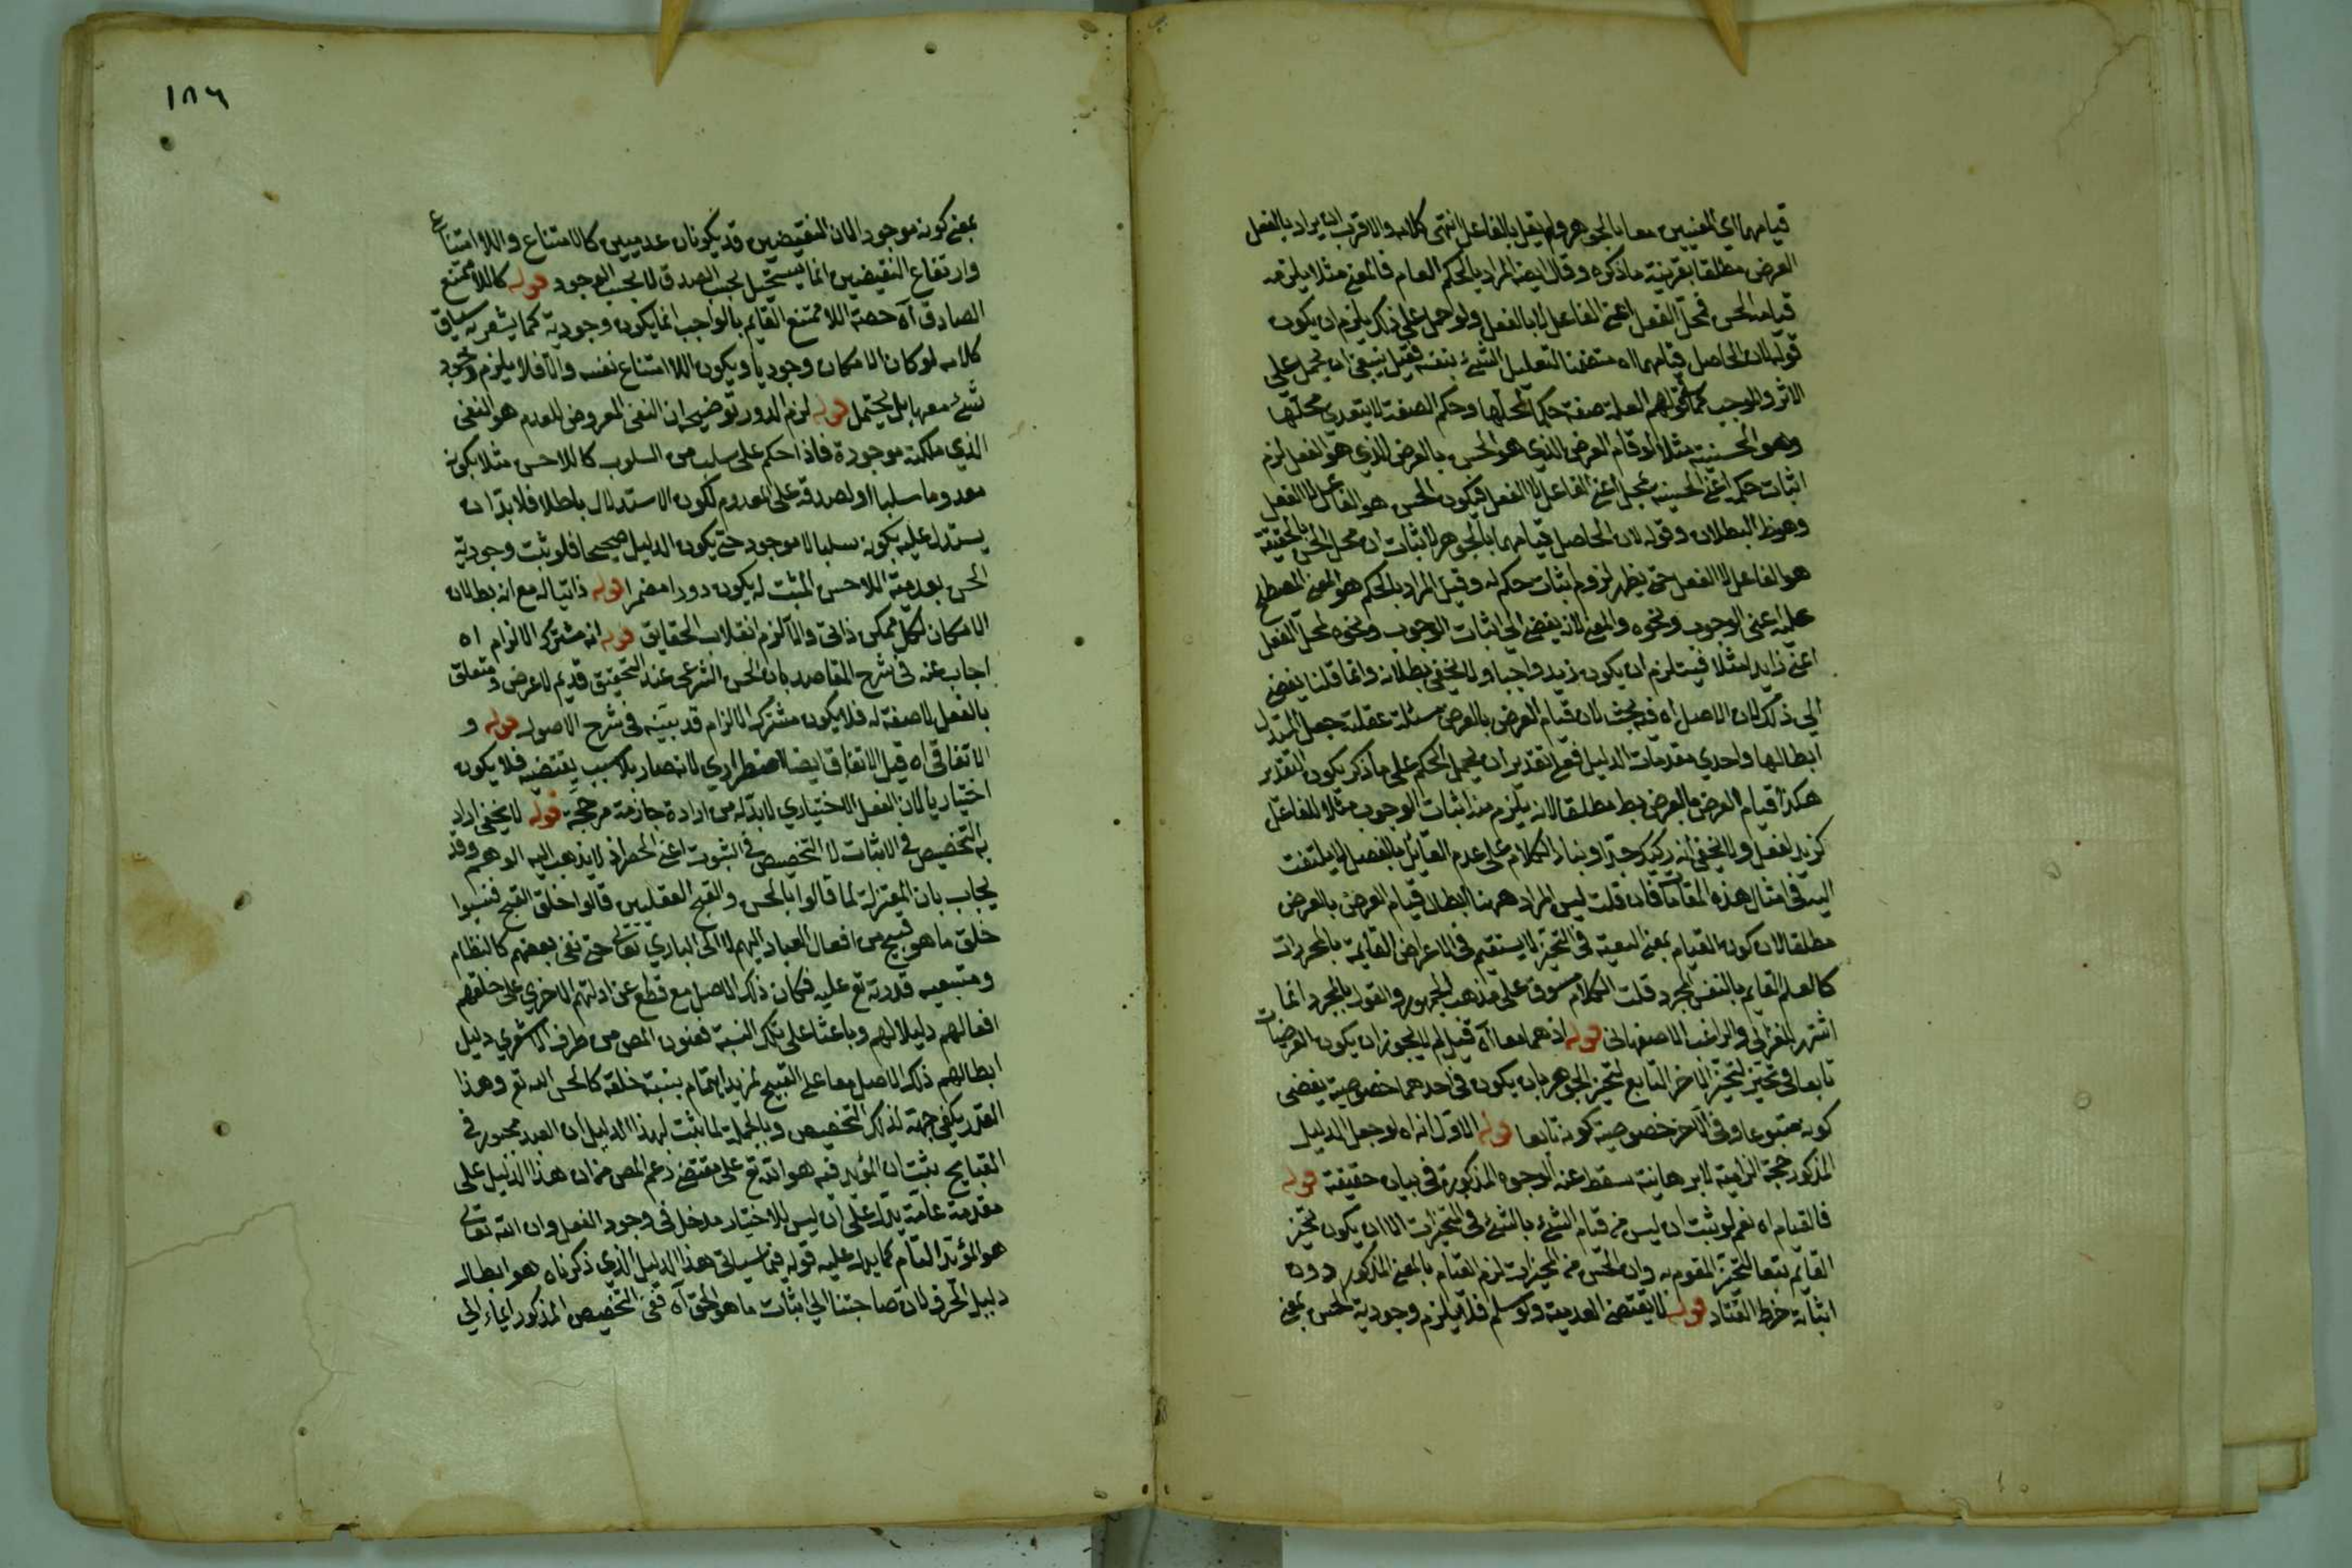 قيامهما اي العينين معا بالجوهر ولم يقل بالفاعل انتهى كلامه والاقرب ان يراد بالفعل
العرض مطلقا بقرينة ما ذكره وقال ايضا المراد بالحكم العام فالمعنى مثلا يلزمه
قيام الحسن بمحل الفعل اعني الفاعل لا بالفعل ولو حمل على ذكر يلزم ان يكون
قوله لان الحاصل قيامهما اه متضمنا لتعليل الشئ بنفسه فقيل ينبغي ان يحمل على
الاثر والموجب كما في قولهم العلم صفة حكما لمحلها وحكم الصفة لا يتعدى محلها
وهو الحسنية مثلا لو قام العرض الذي هو الحسن بالعرض الذي هو الفعل لزم
اثبات حكم اعني الحسنية لمحل اعني الفاعل لا الفعل فيكون الحسن هو الفاعل لا الفعل
وهو ظ البطلان وقوله لان الحاصل قيامهما بالجوهر لاثبات ان محل الحسن بالحقيقة
هو الفاعل لا الفعل حتى يظهر لزوم اثبات حكم له وقيل المراد بالحكم هو المعنى المصطلح
عليه اعني الوجوب ونحوه والمعنى لانه يفضي الى اثبات الوجوب ونحوه لمحل الفعل
اعني زايد مثلا فيستلزم ان يكون زيد واجبا ولا يخفى بطلانه وانما قلنا يفضي
الى ذلك لان الاصل اه فيه بحث لان قيام العرض بالعرض مسئلة عقلية جعل المستدل
ابطالها واحدى مقدمات الدليل فعلى تقدير ان يحمل الحكم على ما ذكر يكون التقدير
هكذا قيام العرض بالعرض بط مطلقا لانه يلزم منه اثبات الوجوب مثلا للفاعل
كزيد لفعل ولا يخفى انه ركيك جدا وبناء الكلام على عدم القائل بالفصل لا يلتفت
اليه في امثال هذه المقامات فان قلت ليس المراد ههنا ابطال قيام العرض بالعرض
مطلقا لان كون القيام بمعنى التبعية في التحيز لا يستقيم في الاعراض القايمة بالمجردات
كالعلم القايم بالنفس المجرد قلت الكلام مسوق على مذهب الجمهور والقول بالمجرد انما
اشتهر للغزالي والراغب الاصفهاني قوله اذ هما معا اه قيل لم لا يجوز ان يكون العرضيات
تابعا في تحيز لتحيز الاخر التابع لتحيز الجوهر بان يكون في احدهما خصوصية يفضي
كونه متبوعا وفي الآخر خصوصية كونه تابعا قوله الاول انه اه لو جعل الدليل
المذكور حجة الزامية لا برهانية سقط عنه الوجوه المذكورة في بيان حقيقته قوله
فالقيام اه نعم لو ثبت ان ليس قيام الشئ بالشئ في المتحيزات الا ان يكون تحيز
القايم تبعا لتحيز المقوم به وان الحسن من المتحيزات لزم القيام بالمعنى المذكور ودون
اثباته خرط القتاد قوله لا يقتضي العدمية ولو سلم فلا يلزم وجودية الحسن بمعنى
١٨٦
بمعنى كونه موجودا لان النقيضين قد يكونان عدميين كالامتناع واللا امتناع
وارتفاع النقيضين انما يستحيل بحسب الصدق لا بحسب الوجود قوله كاللا ممتنع
الصادق اه حصة اللا ممتنع القايم بالواجب انما يكون وجودية كما يشعر به سياق
كلامه لو كان الامكان وجوديا ويكون اللا امتناع نفسه والا فلا يلزم وجود
شئ معها بل يحتمل قوله لزم الدور توضيحه ان النفي المعروض للعدم هو النفي
الذي ملكته موجودة فاذا حكم على سلب من السلوب كاللاحسن مثلا بكونه
معدوما سلبا او لصدقه على المعدوم لكون الاستدلال باطلا فلا بد ان
يستدل عليه بكونه سلبا لا موجود حتى يكون الدليل صحيحا فلو ثبت وجودية
الحسن بعدمية اللاحسن المثبت له يكون دورا مضمرا قوله ذاتيا له مع انه بطلان
الامكان لكل ممكن ذاتي والا لزم انقلاب الحقايق قوله انه مشترك الالزام اه
اجاب عنه في شرح المقاصد بان الحسن الشرعي عند التحقيق قديم لا عرض ومتعلق
بالفعل لا صفة له فلا يكون مشترك الالزام قد بينه في شرح الاصول قوله و
الاتفاقي اه قيل الاتفاقي ايضا اضطراري لانه صار بلا سبب يقتضيه فلا يكون
اختياريا لان الفعل الاختياري لا بد له من ارادة جازمة مرجحة قوله لا يخفى اراد
به التخصيص في الاثبات لا التخصيص في الثبوت اعني الحصر اذ لا يذهب اليه الوهم وقد
يجاب بان المعتزلة لما قالوا بالحسن والقبح العقليين قالوا خلق القبيح فنسبوا
خلق ما هو قبيح من افعال العباد اليهم لا الى الباري تعالى حتى نفى بعضهم كالنظام
ومتبعيه قدرته تع عليه فكان ذلك الاصل مع قطع عن ادلتهم الاخرى على خلقهم
افعالهم دليلا لهم وباعثا على تلك النسبة فعنون المص من طرف الاشعري دليل
ابطالهم ذلك الاصل معا على القبيح لمزيد اهتمام بنسبة خلقه كالحسن الله تع وهذا
القدر يكفي جهة لذلك التخصيص وبالجملة لما ثبت بهذا الدليل ان العبد مجبور في
القبايح ثبت ان المؤثر فيه هو الله تع على مقتضى زعم المص من ان هذا الدليل على
مقدمة عامة يدل على ان ليس للاختيار مدخل في وجود الفعل وان الله تعالى
هو المؤثر التام كما يدل عليه قوله فيما سياتي هذا الدليل الذي ذكرناه هو ابطال
دليل الخرف لان صاحبنا الى اثبات ما هو الحق اه ففي التخصيص المذكور ايماء الى